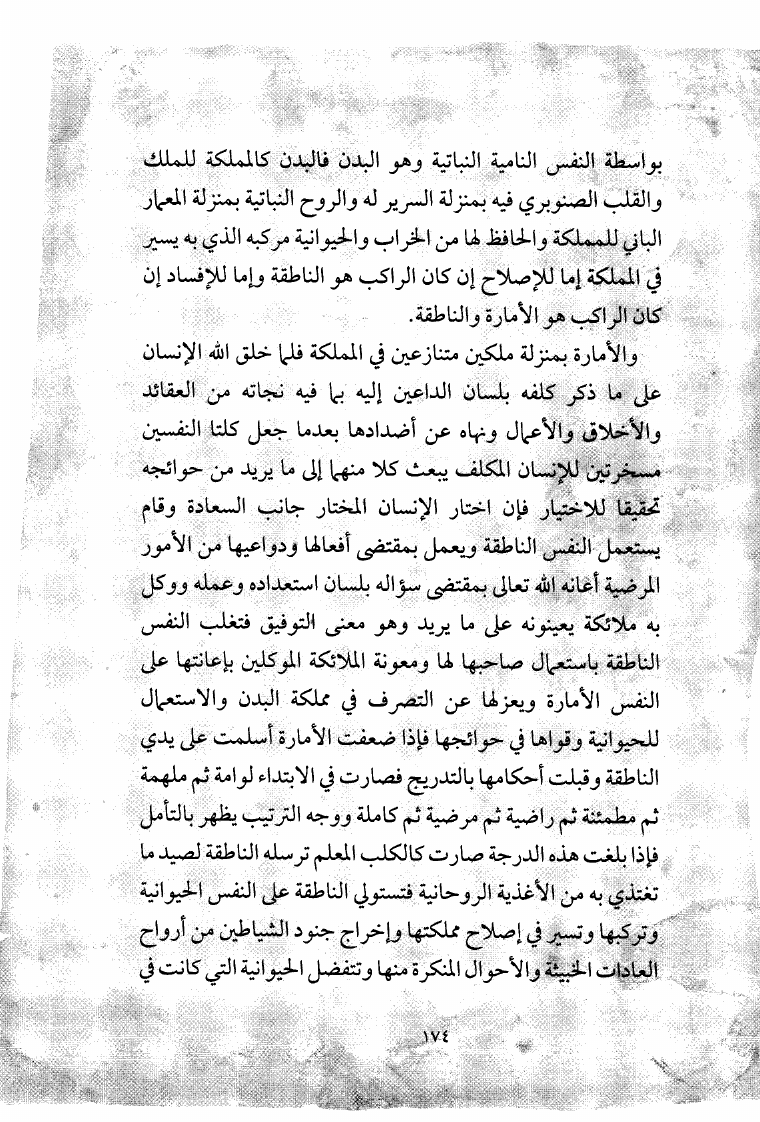 بواسطة النفس النامية النباتية وهو البدن فالبدن كالمملكة للملك
والقلب الصنوبري فيه بمنزلة السرير له والروح النباتية بمنزلة المعمار
الباني للمملكة والحافظ لها من الخراب والحيوانية مركبه الذي به يسير
في المملكة إما للإصلاح إن كان الراكب هو الناطقة وإما للإفساد إن
كان الراكب هو الأمارة والناطقة.
والأمارة بمنزلة ملكين متنازعين في المملكة فلما خلق الله الإنسان
على ما ذكر كلفه بلسان الداعين إليه بما فيه نجاته من العقائد
والأخلاق والأعمال ونهاه عن أضدادها بعدما جعل كلتا النفسين
مسخرتين للإنسان المكلف يبعث كلا منهما إلى ما يريد من حوائجه
تحقيقا للاختيار فإن اختار الإنسان المختار جانب السعادة وقام
يستعمل النفس الناطقة ويعمل بمقتضى أفعالها ودواعيها من الأمور
المرضية أعانه الله تعالى بمقتضى سؤاله بلسان استعداده وعمله ووكل
به ملائكة يعينونه على ما يريد وهو معنى التوفيق فتغلب النفس
الناطقة باستعمال صاحبها لها ومعونة الملائكة الموكلين بإعانتها على
النفس الأمارة ويعزلها عن التصرف في مملكة البدن والاستعمال
للحيوانية وقواها في حوائجها فإذا ضعفت الأمارة أسلمت على يدي
الناطقة وقبلت أحكامها بالتدريج فصارت في الابتداء لوامة ثم ملهمة
ثم مطمئنة ثم راضية ثم مرضية ثم كاملة ووجه الترتيب يظهر بالتأمل
فإذا بلغت هذه الدرجة صارت كالكلب المعلم ترسله الناطقة لصيد ما
تغتذي به من الأغذية الروحانية فتستولي الناطقة على النفس الحيوانية
وتركبها وتسير في إصلاح مملكتها وإخراج جنود الشياطين من أرواح
العادات الخبيثة والأحوال المنكرة منها وتتفضل الحيوانية التي كانت في
١٧٤